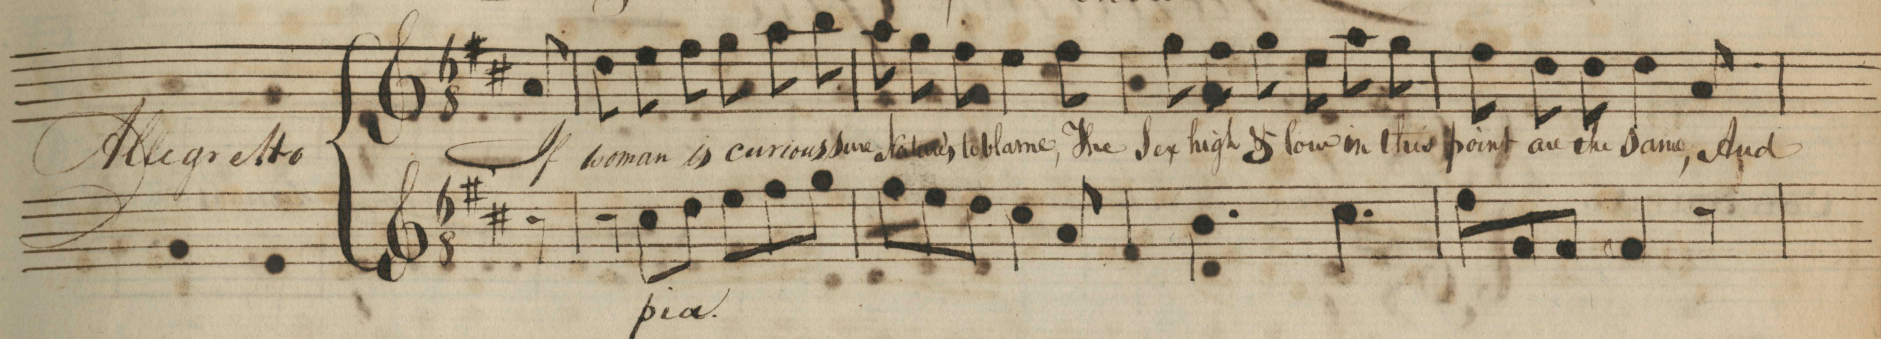 Allegretto
If woman is curious sure Nature's to blame, The Sex high & low in this point are the same, And
pia.